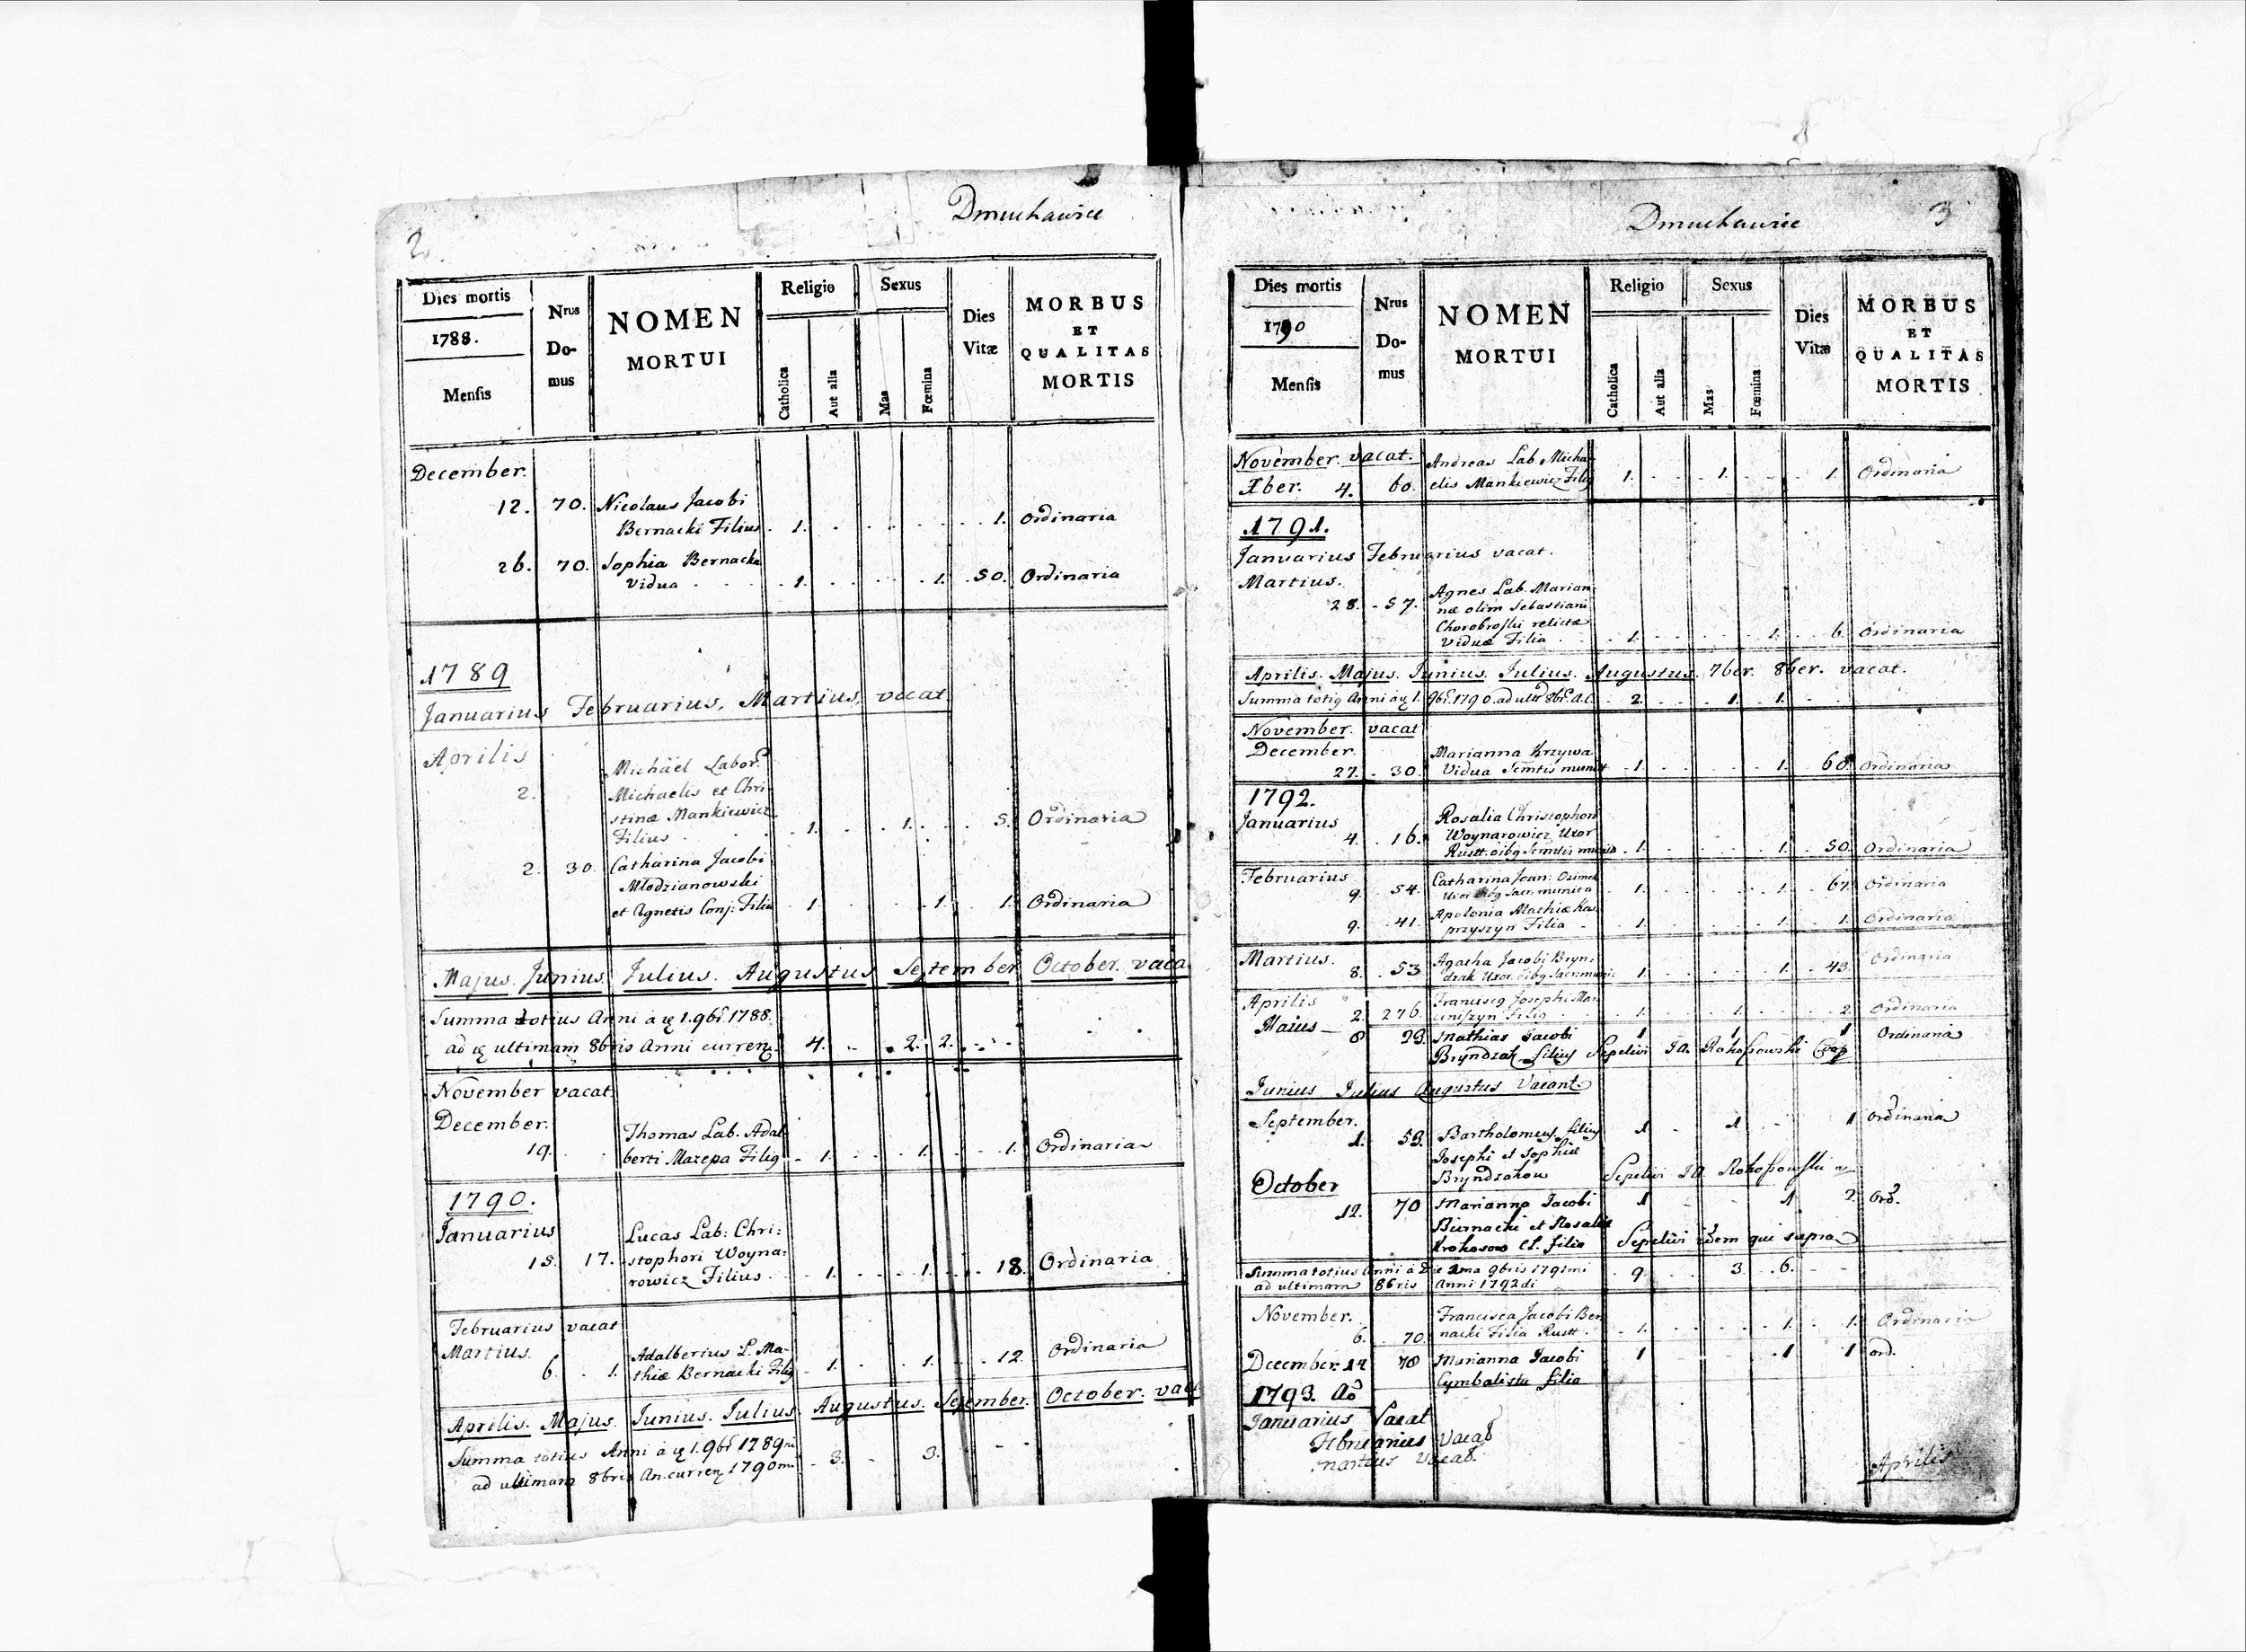 2.
Dmuchawice
Dies mortis
1788.
Mensis
Nrus
Do-
mus
NOMEN
MORTUI
Religio
Catholica
Aut alia
Sexus
Mas
Fœmina
Dies
Vitæ
MORBUS
ET
QUALITAS
MORTIS
December.
12. 70. Nicolaus Jacobi
Bernacki Filius . 1. . . . . . 1. Ordinaria
26. 70. Sophia Bernacka
Vidua . . . 1. . . . 1. . 50. Ordinaria
1789
Januarius Februarius, Martius, vacat
Aprilis
Michäel Labor.
2. Michaelis et Chri
stinæ Mankiewicz
Filius . . 1. . . 1. . . 5. Ordinaria
2. 30. Catharina Jacobi
Młodzianowski
et Agnetis Conj: Filia . 1. . . . 1. . 1. Ordinaria
Majus. Junius. Julius. Augustus September October. vaca
Summa totius Anni à 1. 9br. 1788.
ad ultimam 8bris Anni curren. 4. . . 2. 2. . .
November vacat.
December.
19. Thomas Lab. Adal
berti Mazepa Filig . 1. . . 1. . . 1. Ordinaria
1790.
Januarius
15. 17. Lucas Lab: Chri:
stophori Woyna:
rowicz Filius . . 1. . . 1. . . 18. Ordinaria
Februarius vacat
Martius.
6. . 1. Adalbertus L. Ma-
thiæ Bernacki Filig . 1. . . 1. . . 12. Ordinaria
Aprilis. Majus. Junius. Julius. Augustus. September. October. vac
Summa totius Anni à 1. 9br. 1789ni
ad ultimam 8bris An. curren 1790mi . 3. . 3. . .
Dmuchawice
3
Dies mortis
1790
Mensis
Nrus
Do-
mus
NOMEN
MORTUI
Religio
Catholica
Aut alia
Sexus
Mas
Fœmina
Dies
Vitæ
MORBUS
ET
QUALITAS
MORTIS
November. vacat.
Xber. 4. 60. Andreas Lab. Micha-
elis Mankiewicz Filig 1. . . 1. . . 1. Ordinaria
1791.
Januarius Februarius vacat.
Martius.
28. . 57. Agnes Lab. Marian-
næ olim Sebastiani
Chorobroski relictæ
Viduæ Filia . . 1. . . . 1. . 6. Ordinaria
Aprilis. Majus. Junius. Julius. Augustus. 7ber. 8ber. vacat.
Summa totig Anni à 1. 9br. 1790. ad 8br. A.C. . 2. . . 1. . 1. .
November. vacat
December.
27. . 30. Marianna Krzywa
Vidua . 1. . . . 1. . 60. Ordinaria
1792.
Januarius
4. . 16. Rosalia Christophori
Woynarowicz Uxor
Rustt: . 1. . . . 1. . 50. Ordinaria
Februarius
9. 54. Catharina Joan:
Uxor munita . 1. . . . 1. . 67. Ordinaria
9. . 41. Apolonia Mathiæ Kas
przyszyn Filia . . 1. . . . 1. . 1. Ordinaria
Martius.
8. . 53. Agatha Jacobi Bryn:
dzak Uxor. . 1. . . . 1. . 43. Ordinaria
Aprilis
2. 276. Franciscg Josephi Mar
. 1. . . 1. . . 2. Ordinaria
Maius —
8 23. Mathias Jacobi 1 1 1 Ordinaria
Bryndzak filius Sepelivi Rokossowski
Junius Julius Augustus Vacant.
September.
1. 53. Bartholomeus filius 1 . 1 . 1 Ordinaria
Josephi et Sophiæ
Bryndzakow Sepelivi Rokossowski
October
12. 70 Marianna Jacobi 1 . . 1 2. Ord.
Biernacki et Rosalie
Krokosow CL. filia Sepelivi idem qui supra
Summa totius Anni à Die 1ma 9bris 1791mi
ad ultimam 8bris Anni 1792di . 9. . . 3. . 6. .
November.
6. . 70. Francisca Jacobi Ber
nacki Filia Rustt . . 1. . . . 1. . 1. Ordinaria
December. 14 70 Marianna Jacobi 1 . . 1 1 ord.
Cymbalista filia
1793. Aõ
Januarius Vacat
Februarius Vacat
Martius Vacat.
Aprilis